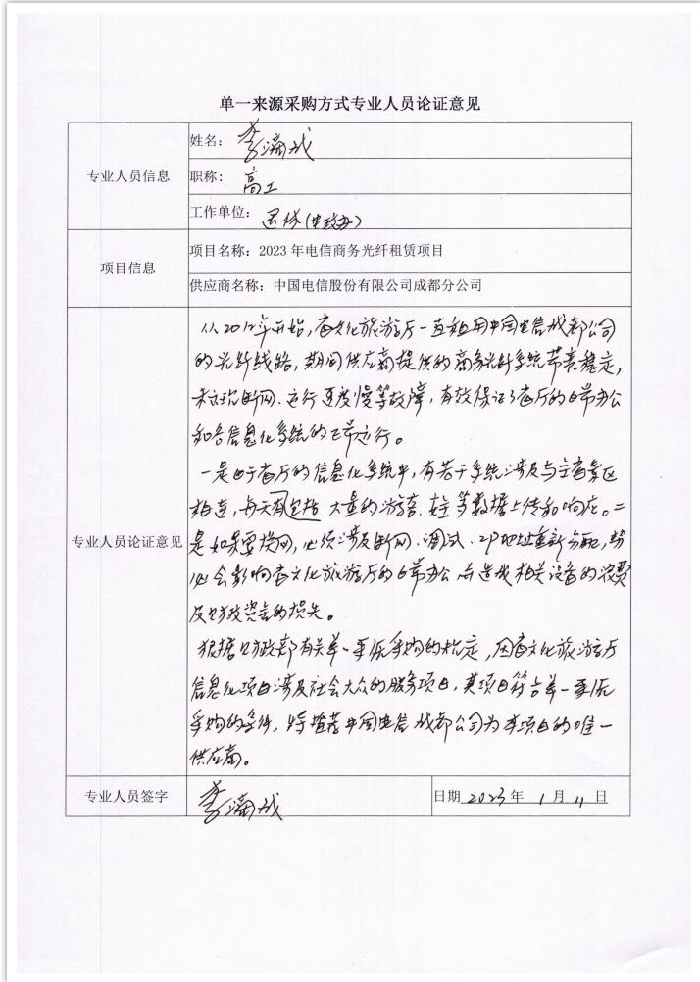 单一来源采购方式专业人员论证意见
专业人员信息
姓名：李满成
职称：高工
工作单位：退休
项目信息
项目名称：2023年电信商务光纤租赁项目
供应商名称：中国电信股份有限公司成都分公司
专业人员论证意见
从2012年开始，省文化旅游厅一直租用中国电信成都公司
的光纤线路，期间供应商提供的商务光纤系统带宽稳定，
未出现断网、运行速度慢等故障，有效保证了省厅的日常办公
和各信息化系统的正常运行。
一是由于省厅的信息化系统中，有若干系统涉及与全省景区
相连，每天有包括大量的游客、等数据上传和响应。二
是如果要换网，必须涉及断网、调试、IP地址重新分配，势
必会影响省文化旅游厅的日常办公并造成相关设备的浪费
及财政资金的损失。
根据财政部有关单一来源采购的规定，因省文化旅游厅
信息化项目涉及社会大众的服务项目，其项目符合单一来源
采购的条件，特推荐中国电信成都公司为本项目的唯一
供应商。
专业人员签字
李满成
日期 2023年1月11日